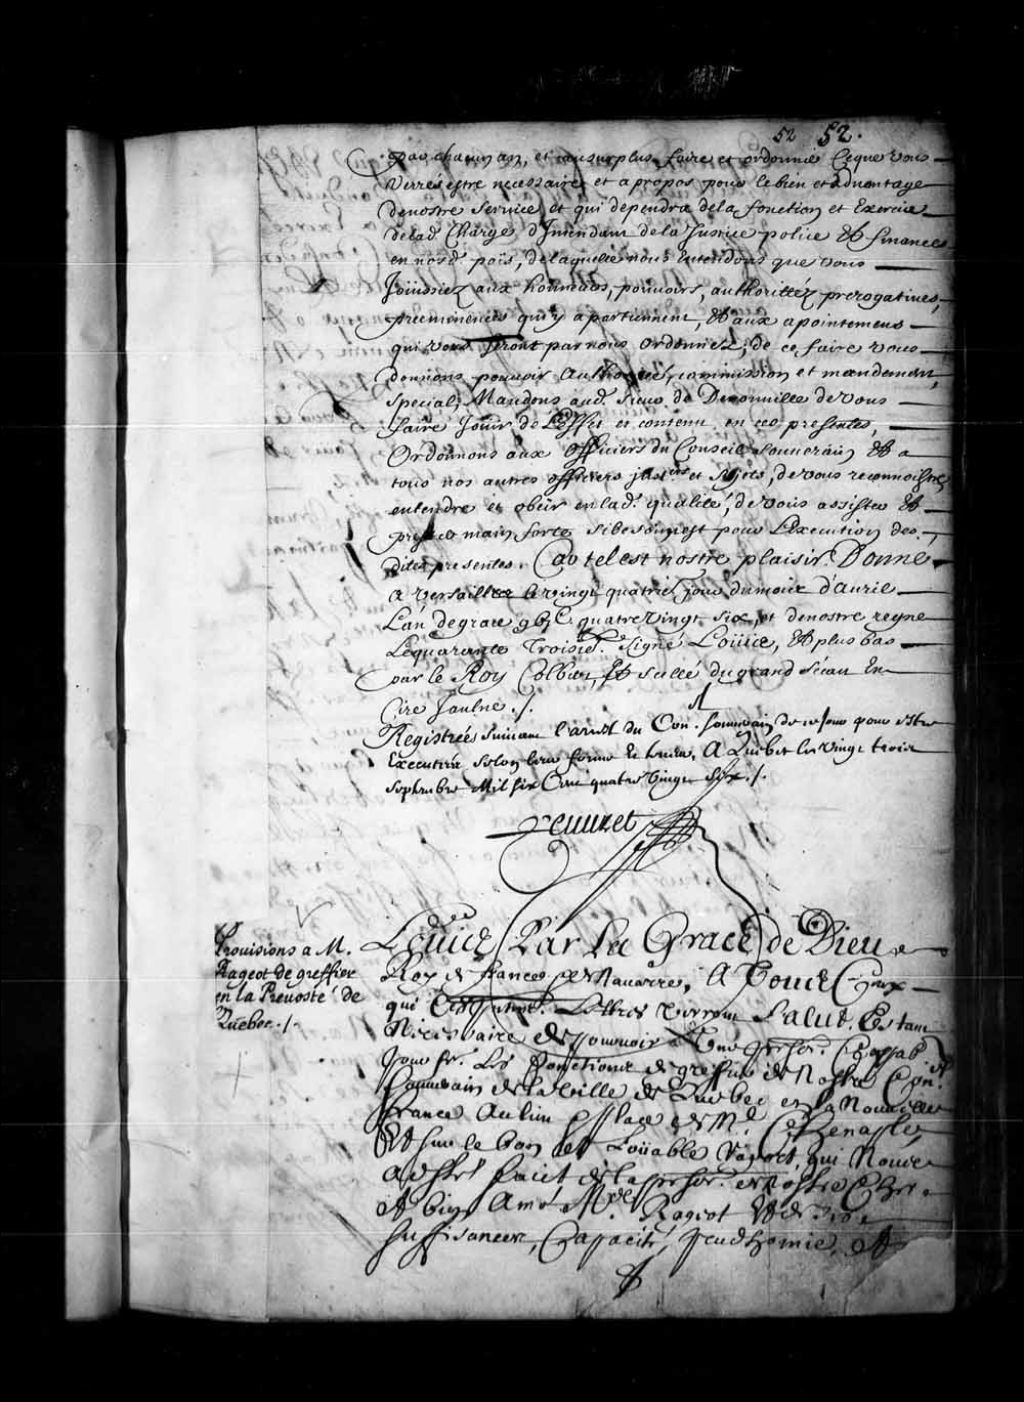 52 52.
par chacun an, et au surplus faire et ordonner ce que vous
verrés estre necessaire et a propos pour le bien et advantage
de nostre service, et qui dependra de la fonction et Exercice
de lad. Charge d'Intendant de la Justice police Et finances
en nosd. païs, de laquelle nous entendons que vous
Joüissiez aux honneurs, pouvoirs, authoritéz prerogatives,
preeminences qui y apartiennent, Et aux apointemens
qui vous seront par nous ordonnez; de ce faire vous
donnons pouvoir authorité, commission et mandement
special; Mandons aud. Sieur de Denonville de vous
faire Jouir de L'effet et contenu en ces presentes,
Ordonnons aux officiers du Conseil Souverain Et a
tous nos autres officiers justiers et sujets, de vous reconnoistre
entendre et obeir en lad. qualité, de vous assister Et
prester main forte si besoin est pour L'Execution des
dites presentes. Car tel est nostre plaisir. Donné
a Versailles le vingt quatrie. jour du mois d'avril
L'an de grace g bj C quatre vingt six, et de nostre regne
Le quarante Troisie. Signé Loüis, Et plus bas
par le Roy Colbert, Et scellé du grand Sceau En
Cire Jaulne ./.
Registrées suivant l'arrest du Con. souverain de ce jour pour estre
Executées selon leur forme et teneur, A Quebec le vingt trois
septembre Mil six Cent quatre vingt six ./.
Peuuret
Provisions a M.
Rageot de greffier
en la Prevosté de
Quebec ./.
Louis Par La Grace de Dieu
Roy de france et de Navarre, A Tous Ceux
qui Ces Lettres verront Salut. Estant
Necessaire de pourvoir Une perso. Capab.
pour fr. Les fonctions de greffier de Nostre Con.
Souverain de la ville de Quebec en la Nouvelle
france Au lieu Et place de
Et sur le bon et Loüable raport, qui Nous
a Esté faict de la perso. de Nostre Cher
Et bien Amé Rageot Et de
suffisance, Capacité, preudhomie, Et